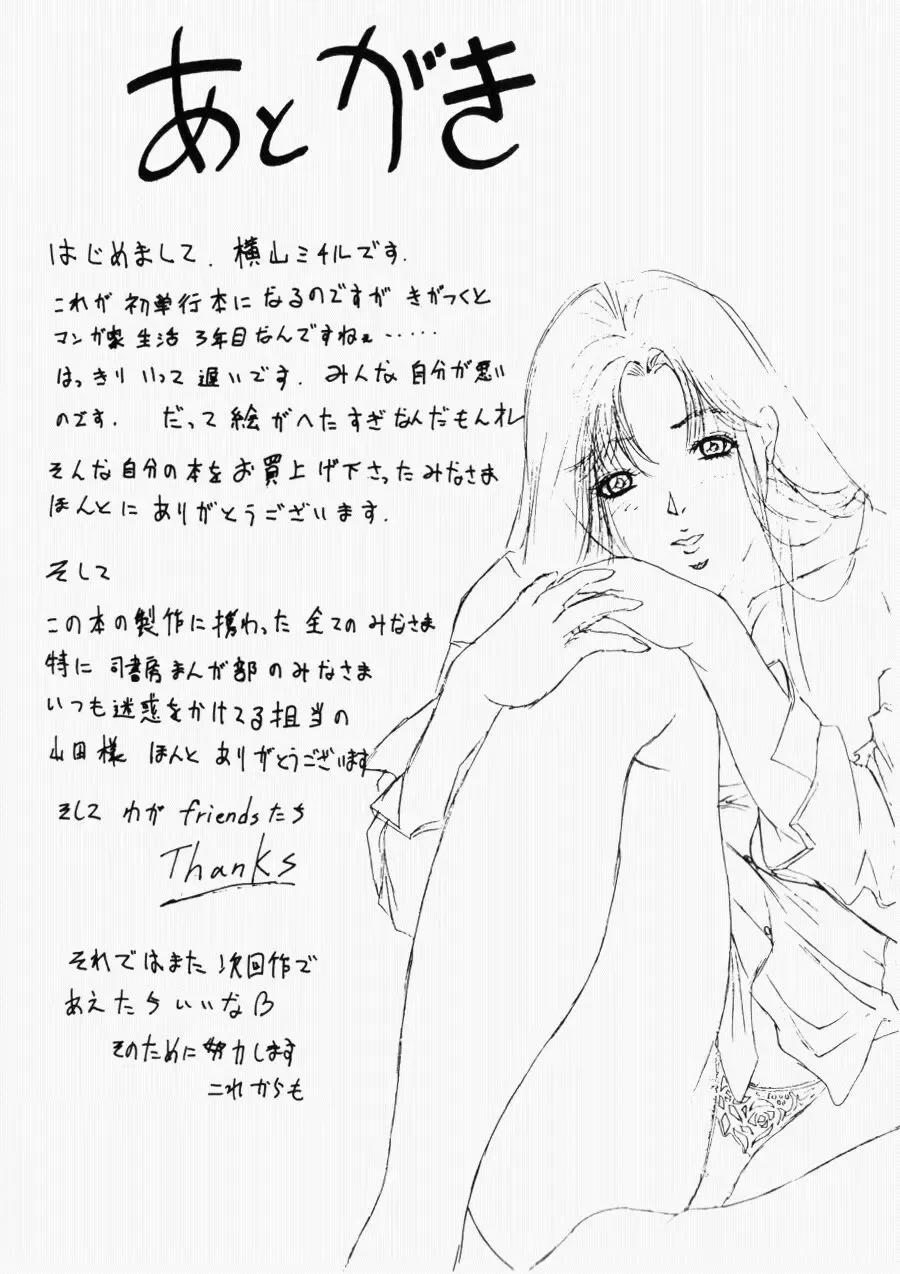 あとがき
はじめまして. 横山ミチルです.
これが 初単行本に なるのですが きがつくと
マンガ家 生活 3年目なんですねぇ‥‥‥
はっきり いって 遅いです. みんな 自分が悪い
のです. だって 絵 が へた すぎ なんだ もんオレ
そんな 自分の 本を お買上げ下さった みなさま
ほんとに ありがとうございます.
そして
この本の製作に携わった 全ての みなさま
特に 司書房まんが部 の みなさま
いつも迷惑をかけてる担当の
山田様 ほんと ありがとうございます
そして わが friendsたち
Thanks
それではまた 次回作で
あえたらいいなβ
そのために努力します
これからも